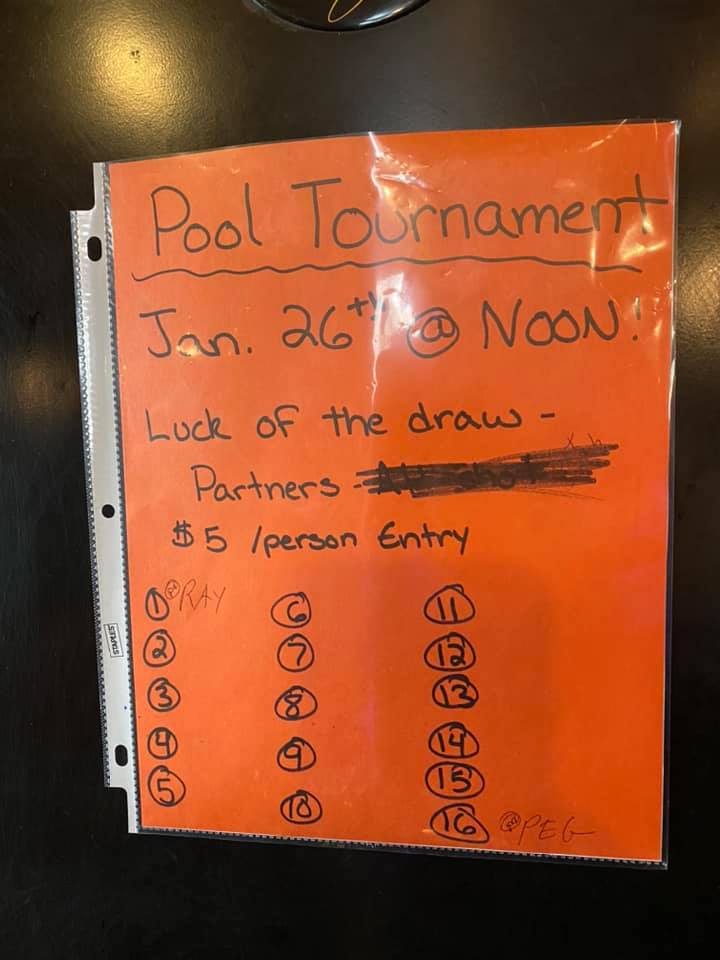 Pool Tournament
Jan. 26th @ NOON!
Luck of the draw -
Partners -
$5 /person Entry
1 RAY
2
3
4
5
6
7
8
9
10
11
12
13
14
15
16 PEG
STAPLES